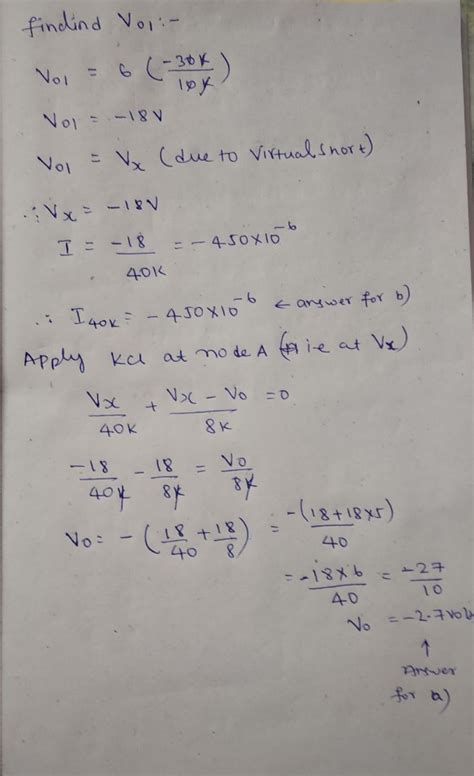 findind Vo1:-
Vo1 = 6 (-30K/10K)
Vo1 = -18V
Vo1 = Vx (due to Virtual Short)
∴ Vx = -18V
I = -18/40K = -450×10^-6
∴ I40K = -450×10^-6 ← answer for b)
Apply KCL at node A (i.e at Vx)
Vx/40K + (Vx - Vo)/8K = 0
-18/40K - 18/8K = Vo/8K
Vo = -(18/40 + 18/8) = -(18+18×5)/40
= -18×6/40 = -27/10
Vo = -2.7 volt
↑
Answer
for a)